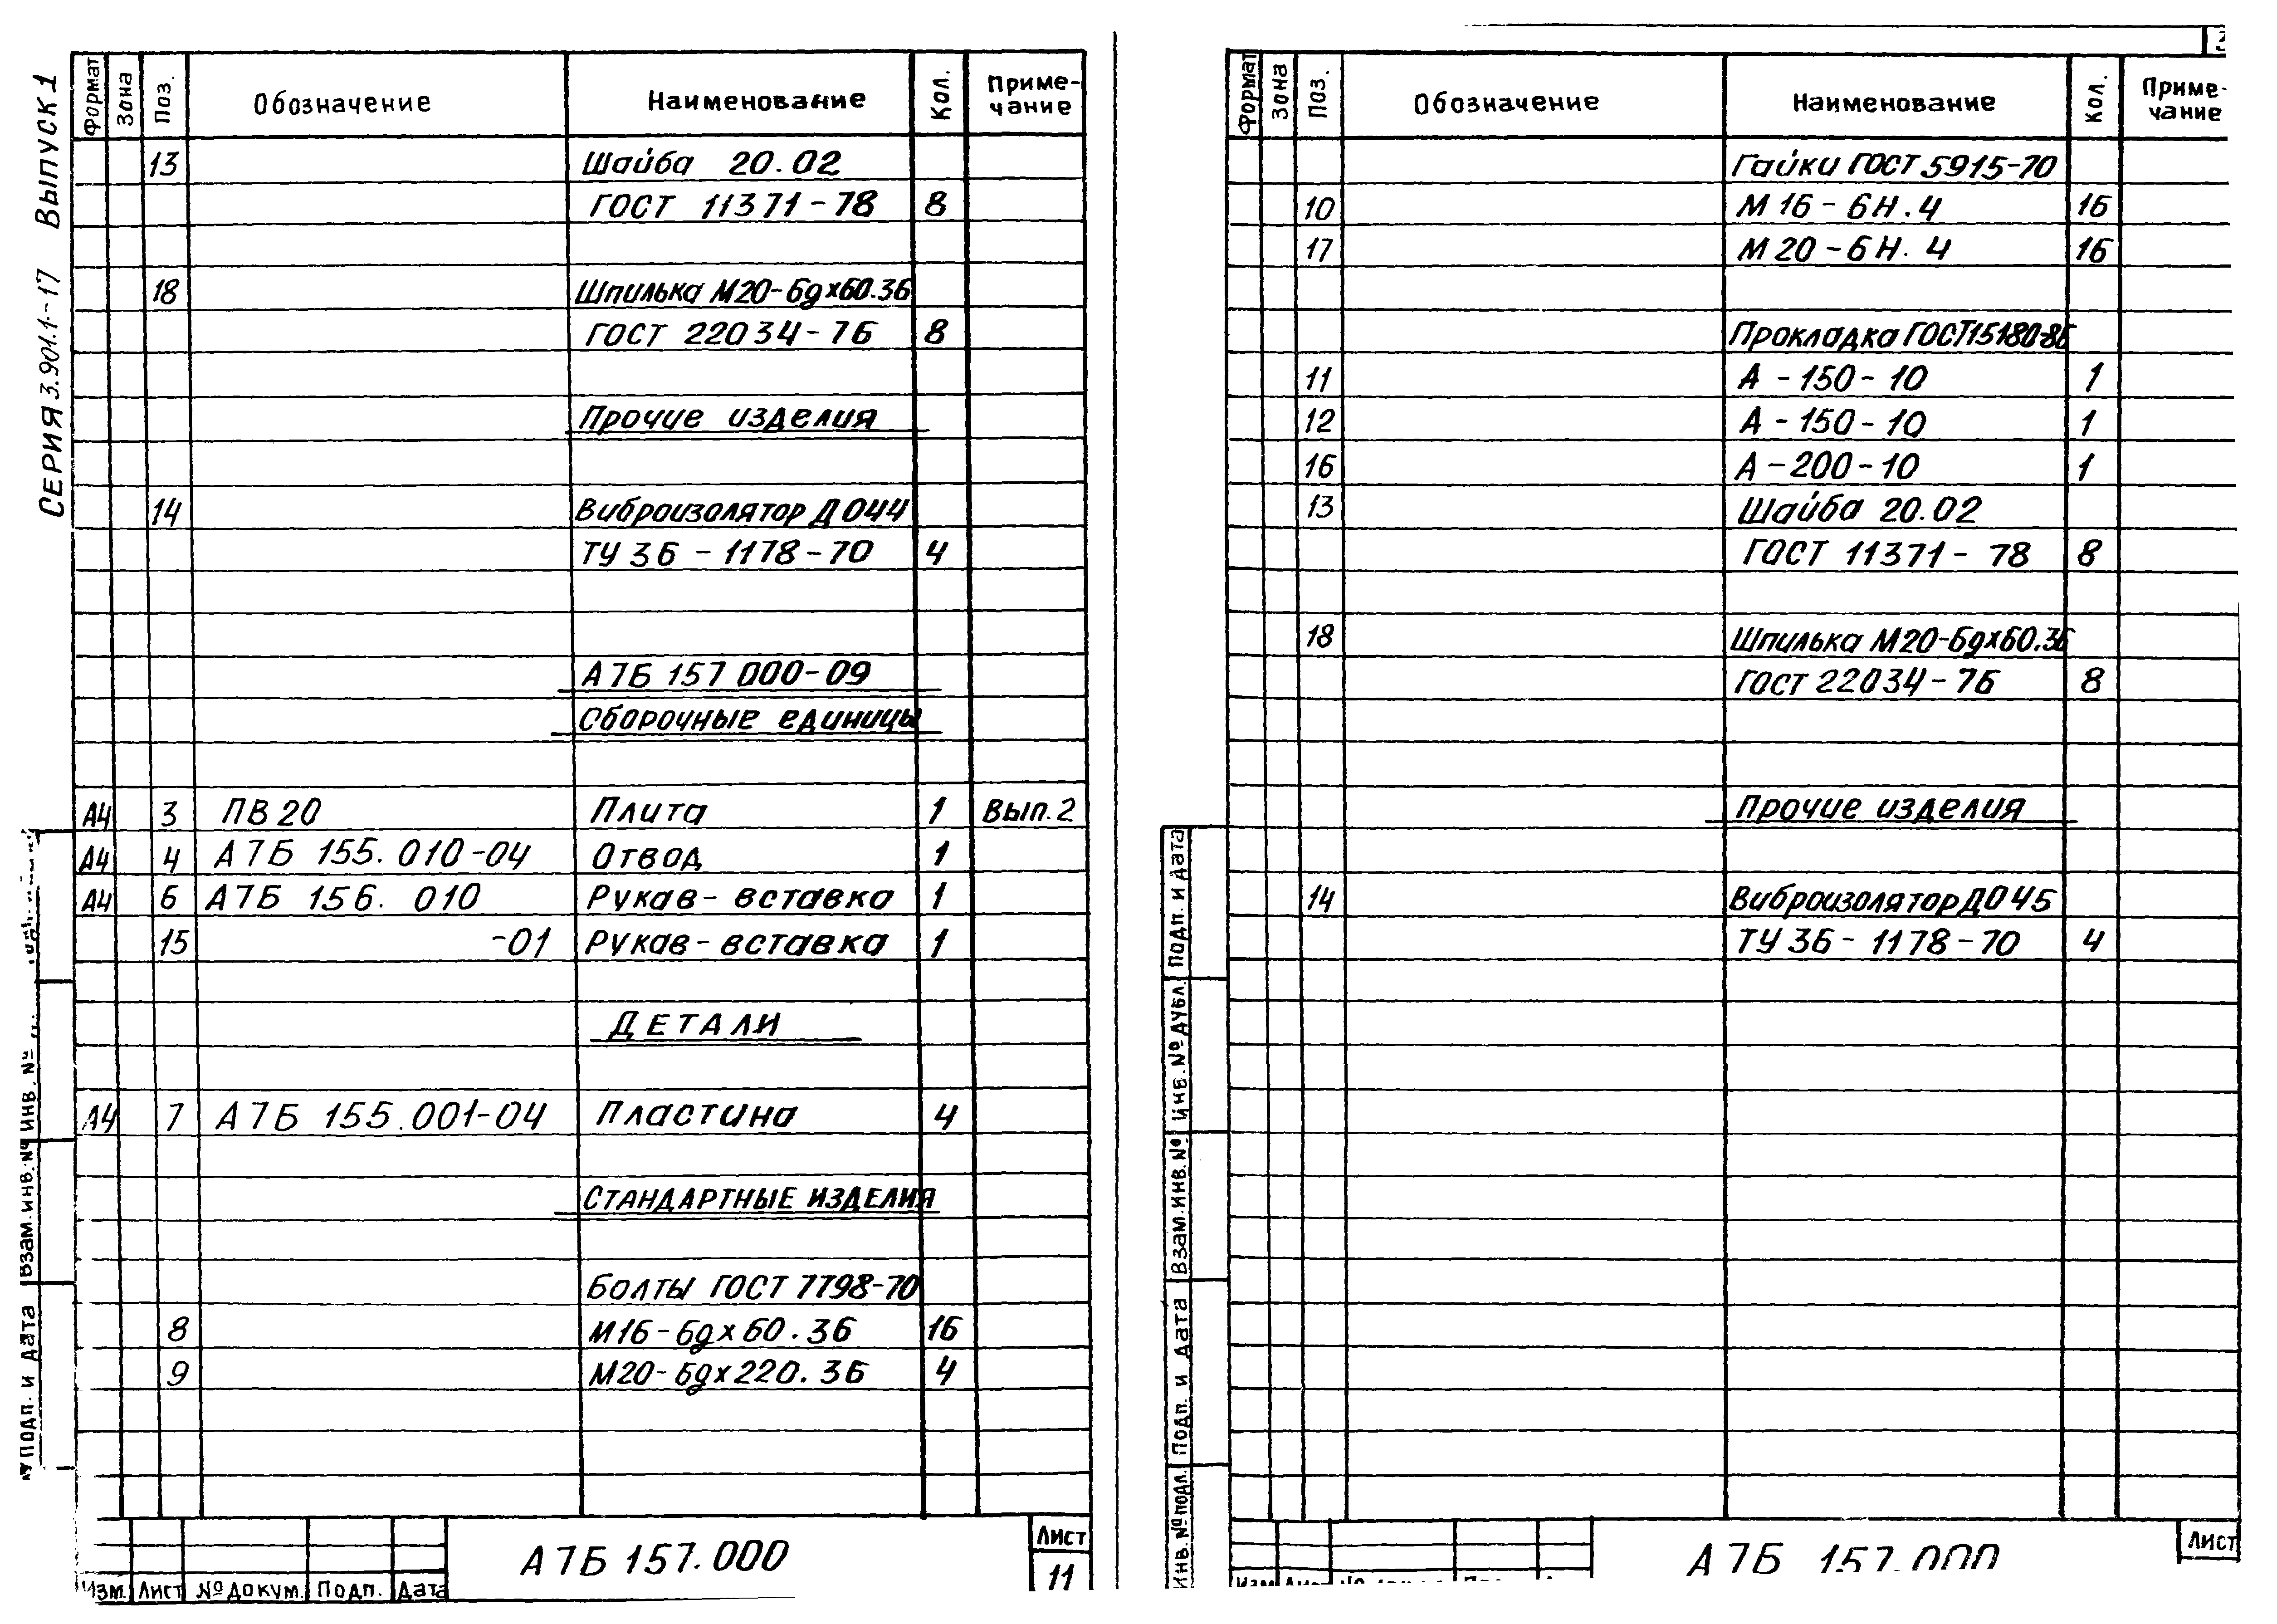 СЕРИЯ 3.901.1-17 ВЫПУСК 1
Формат Зона Поз. Обозначение Наименование Кол. Приме-
чание
13 Шайба 20.02
ГОСТ 11371-78 8
18 Шпилька М20-6gх60.36
ГОСТ 22034-76 8
Прочие изделия
14 Виброизолятор Д044
ТУ 36-1178-70 4
А7Б 157 000-09
Сборочные единицы
А4 3 ПВ20 Плита 1 Вып. 2
А4 4 А7Б 155.010-04 Отвод 1
А4 6 А7Б 156.010 Рукав-вставка 1
15 -01 Рукав-вставка 1
ДЕТАЛИ
А4 7 А7Б 155.001-04 Пластина 4
СТАНДАРТНЫЕ ИЗДЕЛИЯ
Болты ГОСТ 7798-70
8 М16-6gх60.36 16
9 М20-6gх220.36 4
Подп. и дата Взам.инв.№ Инв. №
А7Б 157.000
Лист
11
Изм. Лист № докум. Подп. Дата
Формат Зона Поз. Обозначение Наименование Кол. Приме-
чание
Гайки ГОСТ 5915-70
10 М16-6Н.4 16
17 М20-6Н.4 16
Прокладка ГОСТ15180-86
11 А-150-10 1
12 А-150-10 1
16 А-200-10 1
13 Шайба 20.02
ГОСТ 11371-78 8
18 Шпилька М20-6gх60.36
ГОСТ 22034-76 8
Прочие изделия
14 Виброизолятор Д045
ТУ 36-1178-70 4
Инв.№подл. Подп. и дата Взам.инв.№ Инв.№дубл. Подп. и дата
А7Б 157.000
Лист